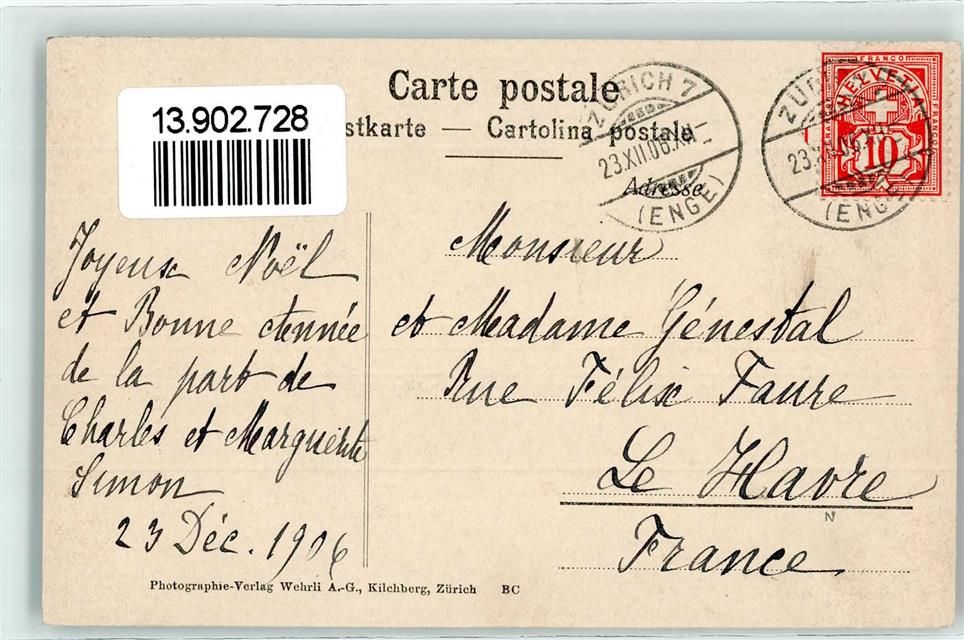 13.902.728
Carte postale
stkarte — Cartolina postale
Adresse
ZÜRICH 7
23.XII.06.XII
(ENGE)
ZÜRICH
23.XII.06
(ENGE)
FRANCO
HELVETIA
10
Joyeux Noël
et Bonne Année
de la part de
Charles et Marguerite
Simon
23 Déc. 1906
Monsieur
et Madame Génestal
Rue Félix Faure
Le Havre
N
France
Photographie-Verlag Wehrli A.-G., Kilchberg, Zürich BC